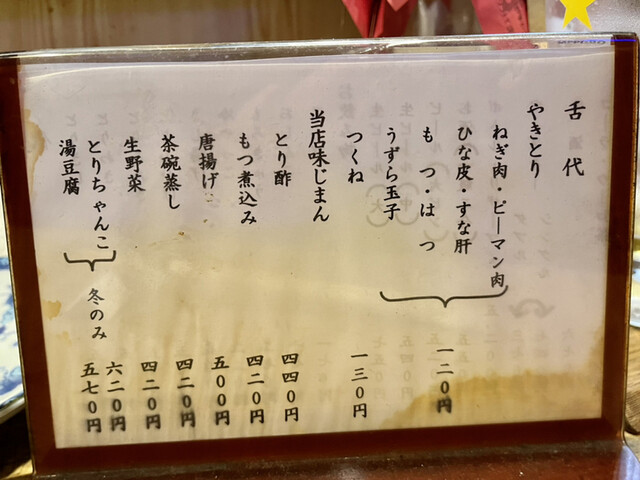 舌代
やきとり
ねぎ肉・ピーマン肉
ひな皮・すな肝
もつ・はつ
うずら玉子
一二〇円
つくね 一三〇円
当店味じまん
とり酢 四四〇円
もつ煮込み 四二〇円
唐揚げ 五〇〇円
茶碗蒸し 四二〇円
生野菜 四二〇円
とりちゃんこ 六二〇円
湯豆腐 五七〇円
冬のみ